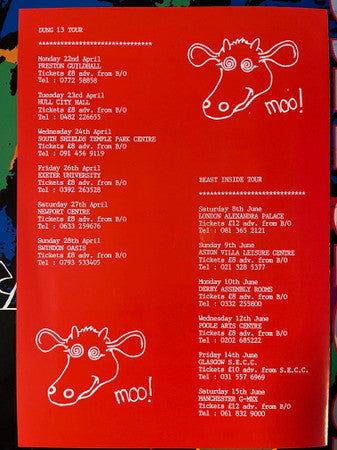 DUNG 13 TOUR
********************************
Monday 22nd April
PRESTON GUILDHALL
Tickets £8 adv. from B/O
Tel : 0772 58858
Tuesday 23rd April
HULL CITY HALL
Tickets £8 adv. from B/O
Tel : 0482 226655
Wednesday 24th April
SOUTH SHIELDS TEMPLE PARK CENTRE
Tickets £8 adv. from B/O
Tel : 091 456 9119
Friday 26th April
EXETER UNIVERSITY
Tickets £8 adv. from B/O
Tel : 0392 263528
Saturday 27th April
NEWPORT CENTRE
Tickets £8 adv. from B/O
Tel : 0633 259676
Sunday 28th April
SWINDON OASIS
Tickets £8 adv. from B/O
Tel : 0793 533405
moo!
moo!
BEAST INSIDE TOUR
******************************
Saturday 8th June
LONDON ALEXANDRA PALACE
Tickets £12 adv. from B/O
Tel : 081 365 2121
Sunday 9th June
ASTON VILLA LEISURE CENTRE
Tickets £8 adv. from B/O
Tel : 021 328 5377
Monday 10th June
DERBY ASSEMBLY ROOMS
Tickets £8 adv. from B/O
Tel : 0332 255800
Wednesday 12th June
POOLE ARTS CENTRE
Tickets £8 adv. from B/O
Tel : 0202 685222
Friday 14th June
GLASGOW S.E.C.C.
Tickets £10 adv. from S.E.C.C.
Tel : 031 557 6969
Saturday 15th June
MANCHESTER G-MEX
Tickets £12 adv. from B/O
Tel : 061 832 9000